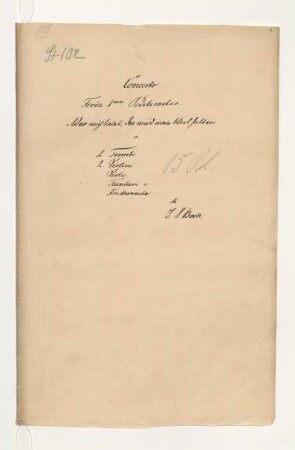 102
St 102
Concerto
Feria 1ma Pentecostes.
Wer mich liebet, der wird mein Wort halten
a
2. Trombe
2. Violini
Viola
Tamburi e
Fondamento
15 Bl
di
J. S. Bach.